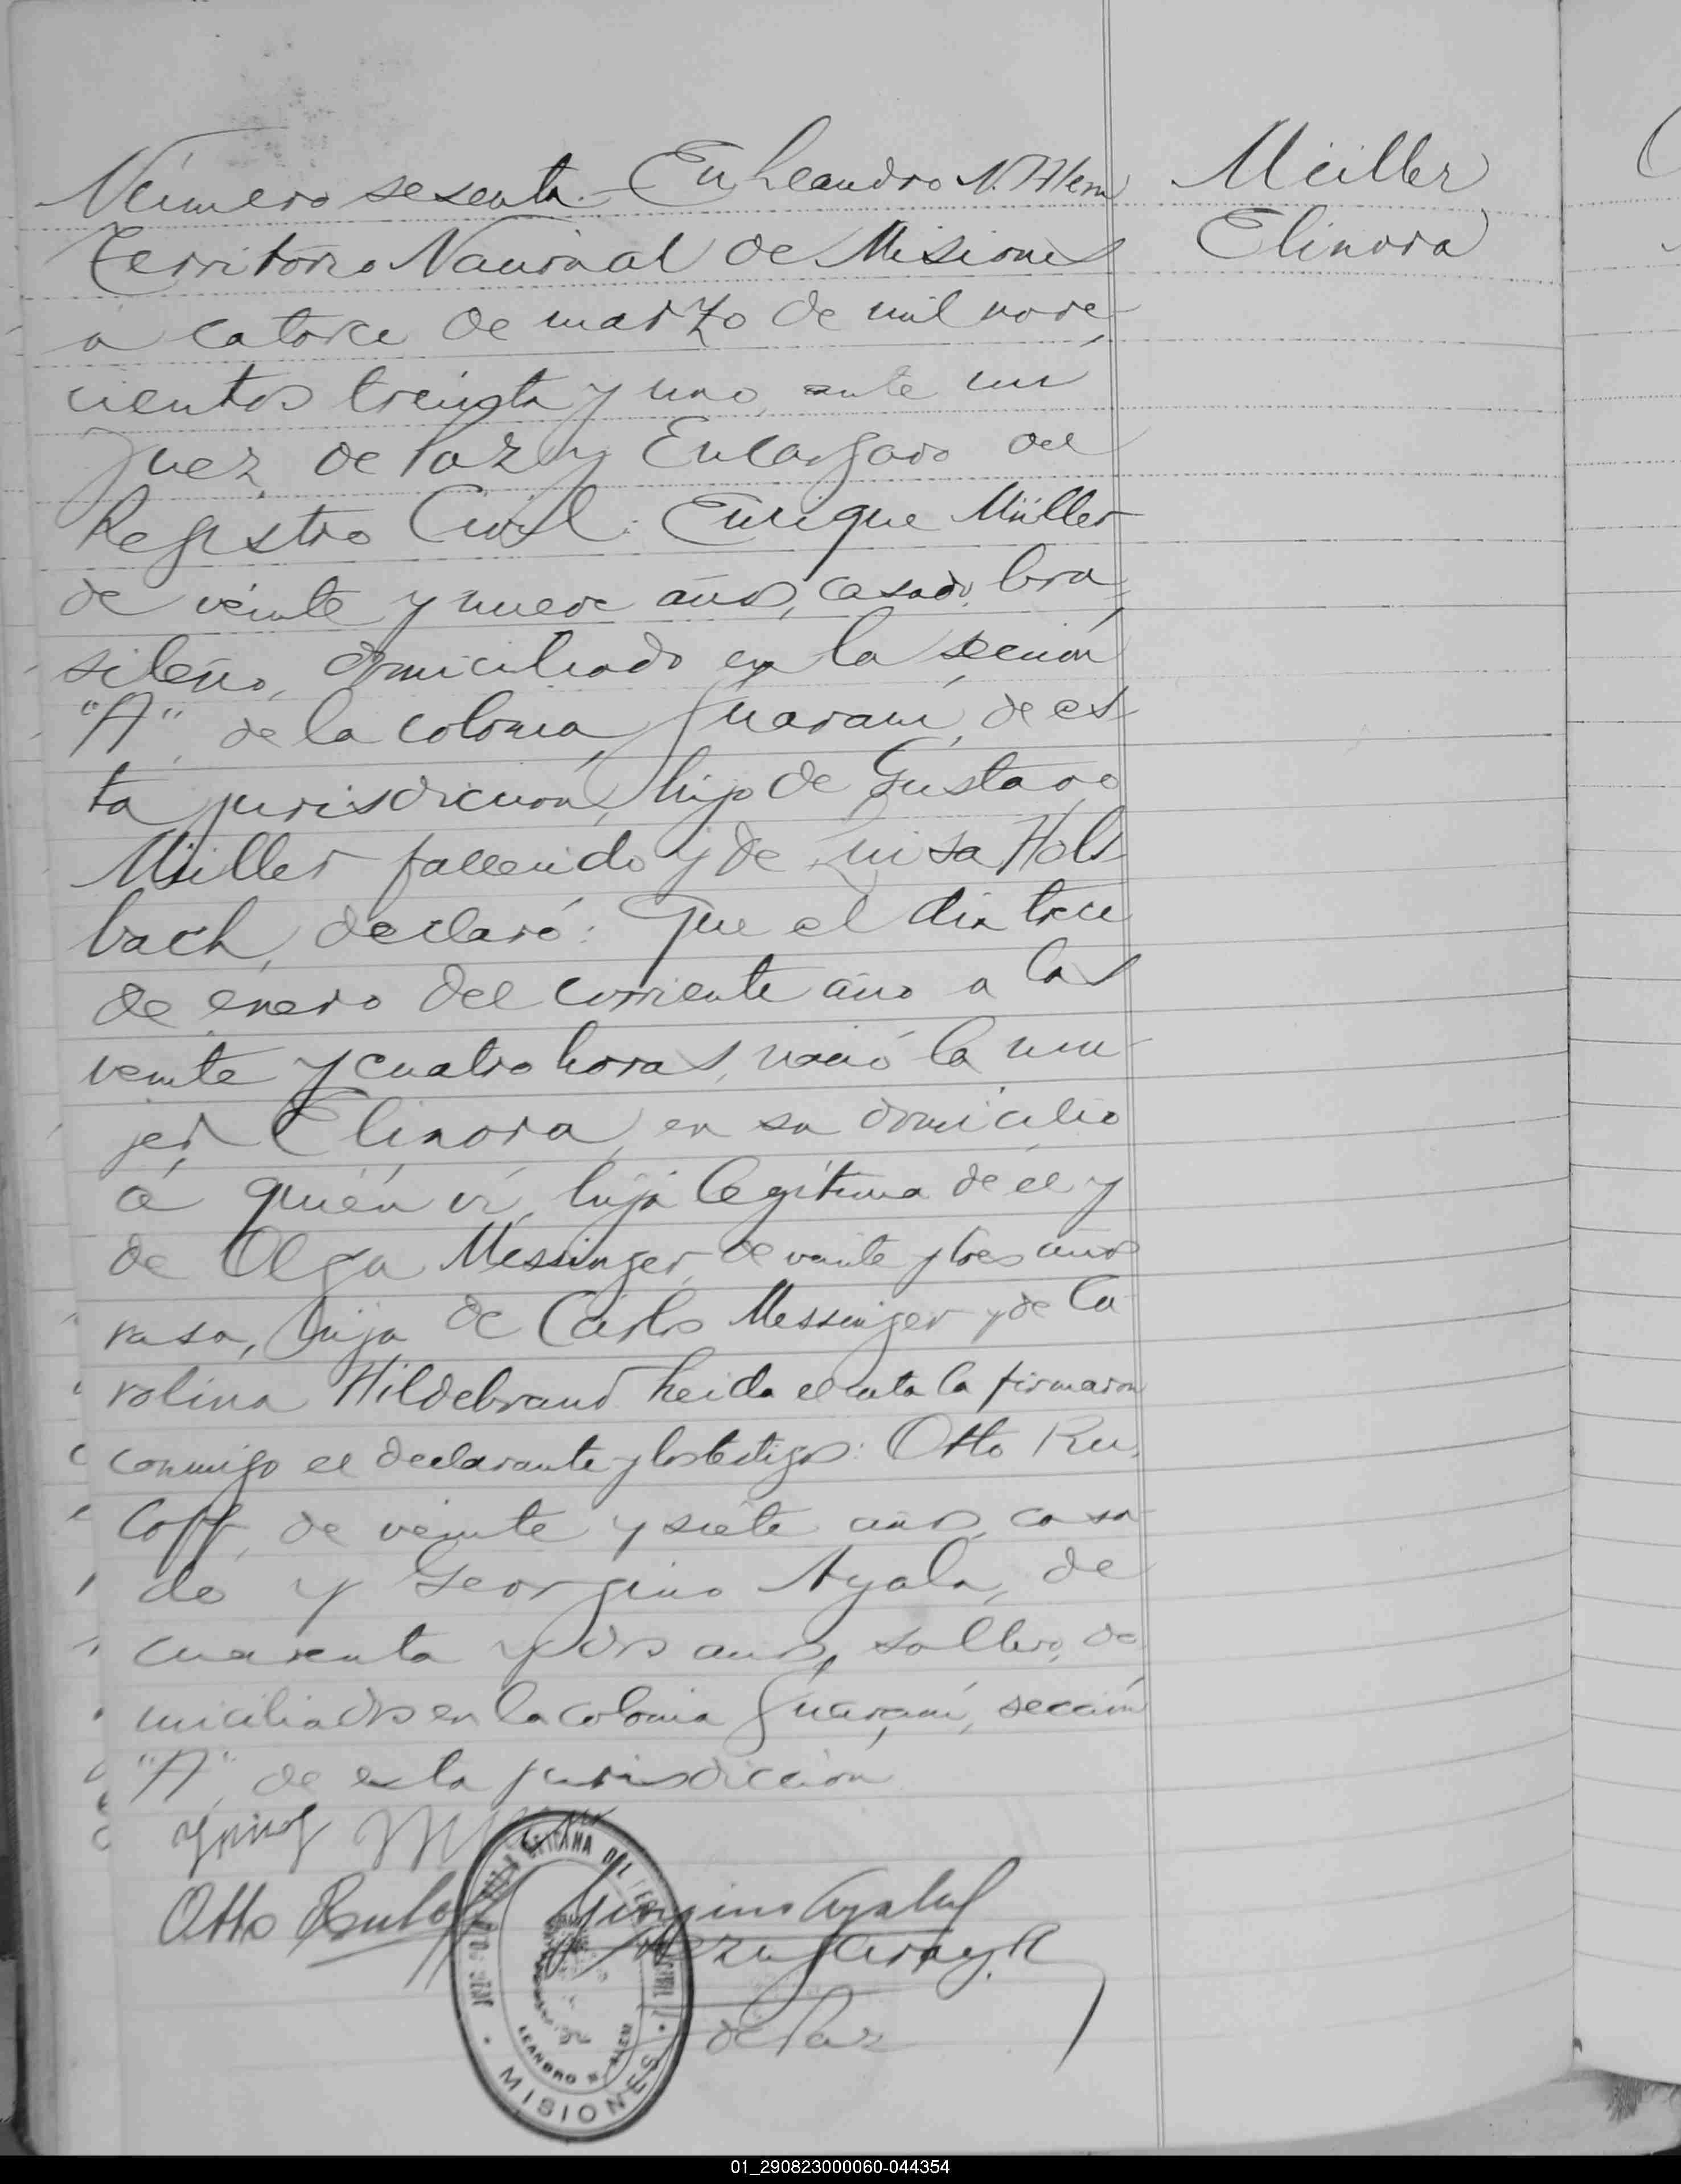 Número sesenta.- En Leandro N. Alem
Territorio Nacional de Misiones
a catorce de marzo de mil nove-
cientos treinta y uno, ante mi
Juez de Paz y Encargado del
Registro Civil: Enrique Müller
de veinte y nueve años, casado, bra-
sileño, domiciliado en la sección
"A" de la colonia Guaraní, de es-
ta jurisdicción, hijo de Gustavo
Müller fallecido y de Luisa Hols-
bach, declaró: Que el día trece
de enero del corriente año a las
veinte y cuatro horas, nació la mu-
jer Elinora, en su domicilio
a quién ví, hija legítima de él y
de Olga Messinger, de veinte y tres años
rusa, hija de Carlos Messinger y de Ca-
rolina Hildebrand. Leida el acta la firmaron
conmigo el declarante y los testigos: Otto Ru-
loff, de veinte y siete años, casa-
do y Georgino Ayala, de
cuarenta y dos años, soltero, do-
miciliados en la colonia Guaraní, sección
"A" de esta jurisdicción
Otto Ruloff Georgino Ayala
de Paz
Müller
Elinora
LEANDRO N. ALEM
MISIONES
01_290823000060-044354